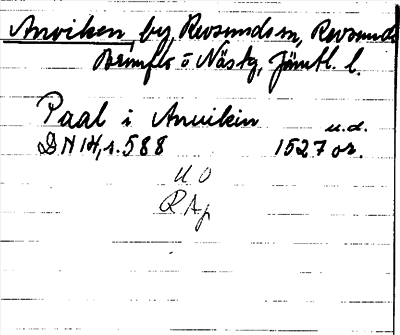 Anviken, by, Revsunds sn, Revsunds
Brunflo o Näsk tg, Jämtl. l.
Paal i Anuikin u.d.
DN 14, s. 588 1527 or.
U O
RAp